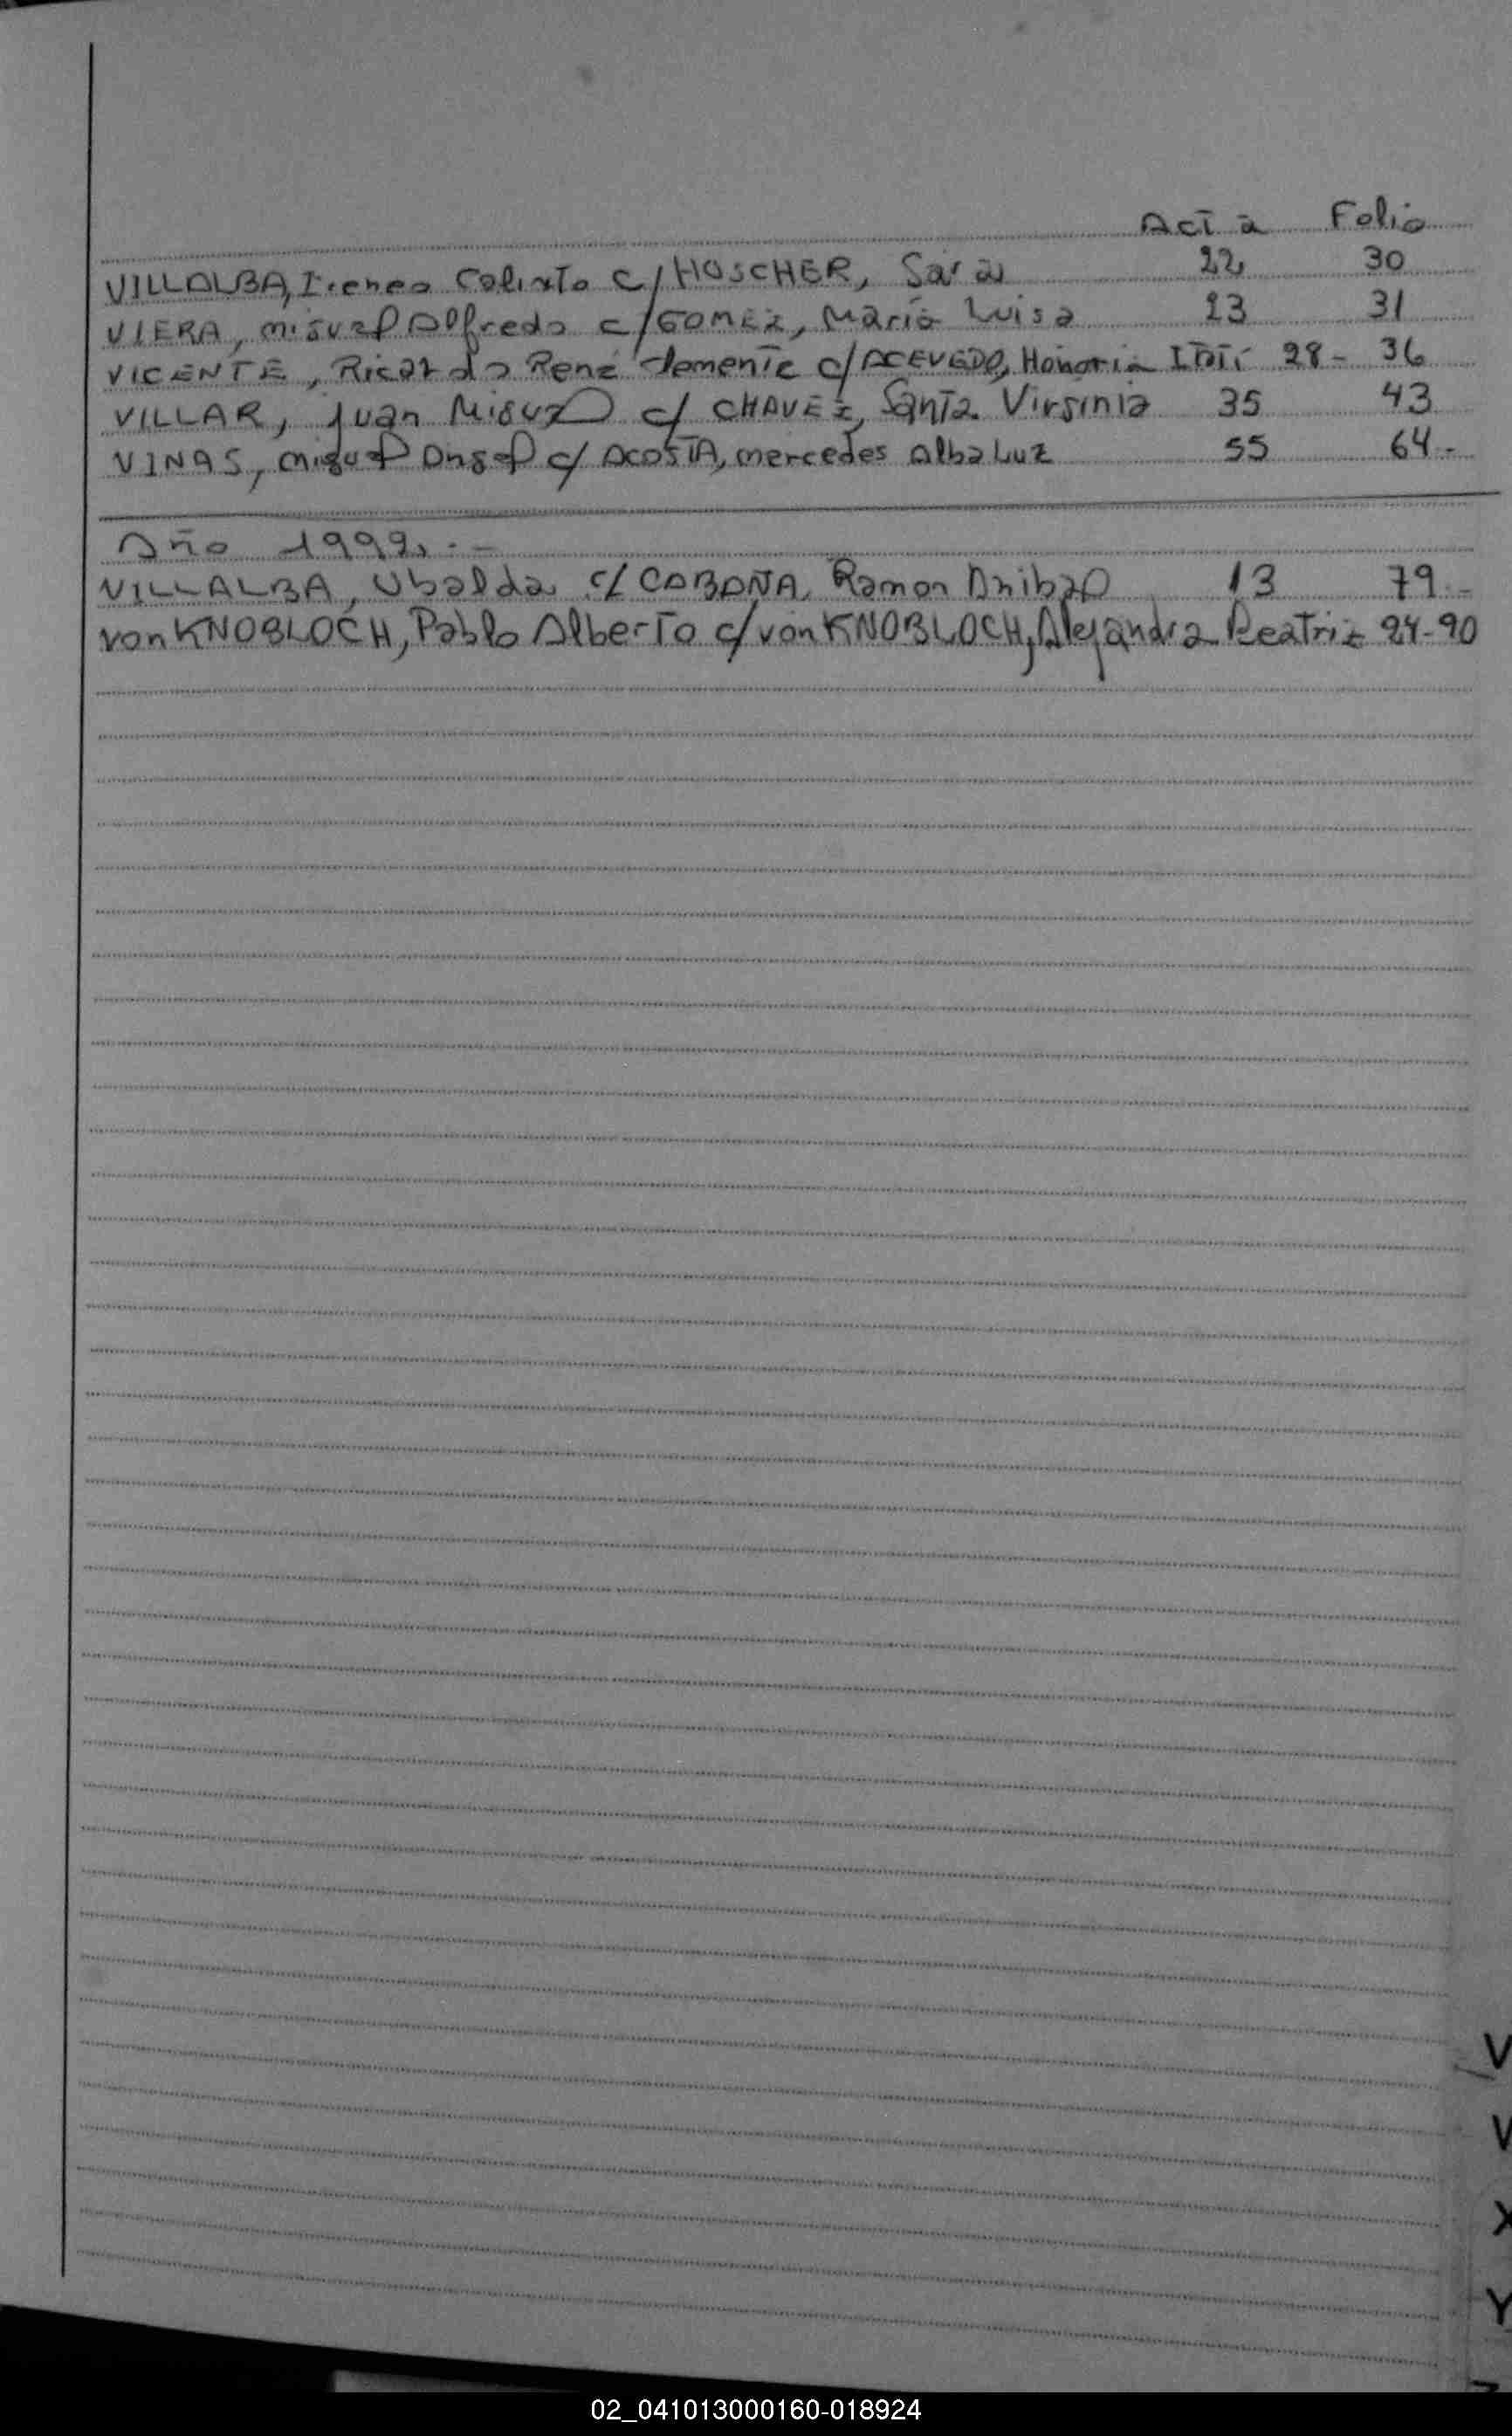 Acta Folio
VILLALBA, Ireneo Calixto c/HOSCHER, Sara 22 30
VIERA, Miguel Alfredo c/GOMEZ, María Luisa 23 31
VICENTE, Ricardo René Clemente c/ACEVEDO, Honoria Itatí 28- 36
VILLAR, Juan Miguel c/ CHAVEZ, Santa Virginia 35 43
VINAS, Miguel Angel c/ ACOSTA, Mercedes Alba Luz 55 64-
Año 1999.-
VILLALBA, Ubalda c/ CABAÑA, Ramon Anibal 13 79-
von KNOBLOCH, Pablo Alberto c/ von KNOBLOCH, Alejandra Beatriz 24-90
V
X
Y
02_041013000160-018924